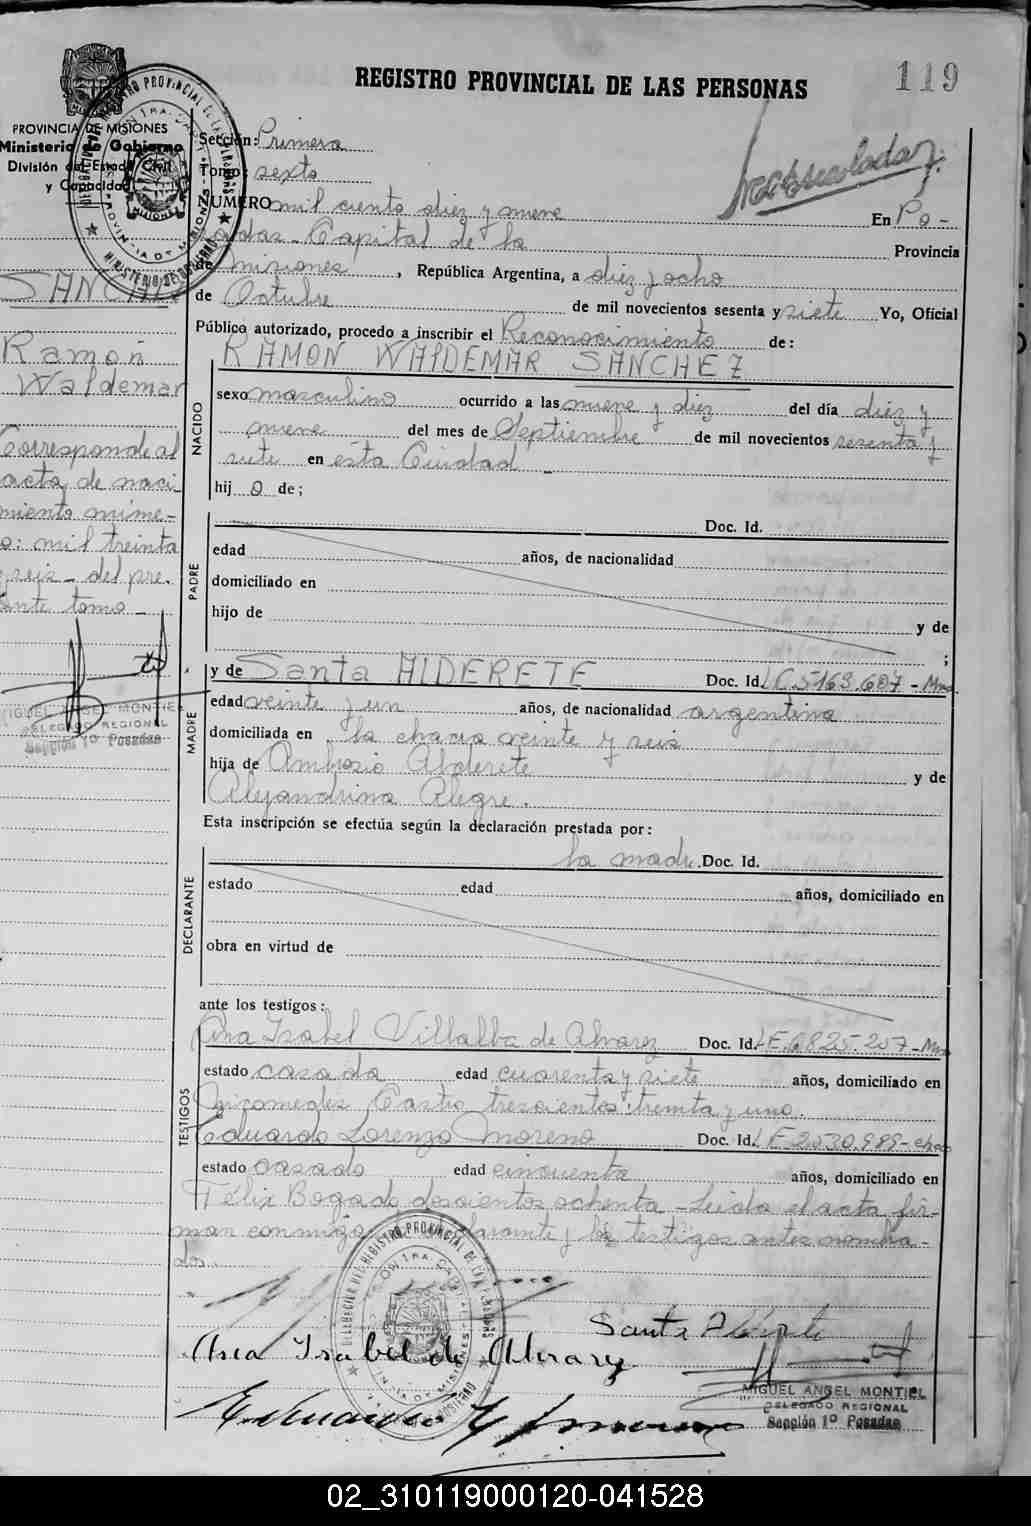 REGISTRO PROVINCIAL DE LAS PERSONAS
119
PROVINCIA DE MISIONES
Ministerio de Gobierno
División del Estado Civil
y Capacidad
Sección: Primera
Tomo: sexto
NUMERO mil ciento diez y nueve En Po-
sadas - Capital de la Provincia
de Misiones, República Argentina, a diez y ocho
de Octubre de mil novecientos sesenta y siete Yo, Oficial
Público autorizado, procedo a inscribir el Reconocimiento de:
RAMON WALDEMAR SANCHEZ
NACIDO
sexo masculino ocurrido a las nueve y diez del día diez y
nueve del mes de Septiembre de mil novecientos sesenta y
siete en esta Ciudad -
hij o de;
SANCHEZ
Ramón
Waldemar
Corresponde al
acta de naci-
miento núme-
o: mil treinta
y seis - del pre-
sente tomo -
MIGUEL ANGEL MONTIEL
DELEGADO REGIONAL
Sección 1º Posadas
PADRE
Doc. Id.
edad años, de nacionalidad
domiciliado en
hijo de y de
;
MADRE
y de Santa ALDERETE Doc. Id. LC 5.163.607 - Mnes.
edad veinte y un años, de nacionalidad argentina
domiciliada en la chacra veinte y seis
hija de Ambrosio Alderete y de
Alejandrina Alegre.
Esta inscripción se efectúa según la declaración prestada por:
DECLARANTE
la madre Doc. Id.
estado edad años, domiciliado en
obra en virtud de
ante los testigos:
TESTIGOS
Ana Isabel Villalba de Alvarez Doc. Id. LE 6.825.257 - Mnes
estado casada edad cuarenta y siete años, domiciliado en
Nicomedes Castro trescientos treinta y uno.
Eduardo Lorenzo Moreno Doc. Id. LE 2.530.989 - chaco
estado casado edad cincuenta años, domiciliado en
Félix Bogado doscientos ochenta - Leída el acta fir-
man conmigo declarante y los testigos antes nombra-
dos.
Santa Alderete
Ana Isabel de Alvarez
MIGUEL ANGEL MONTIEL
DELEGADO REGIONAL
Sección 1º Posadas
02_310119000120-041528